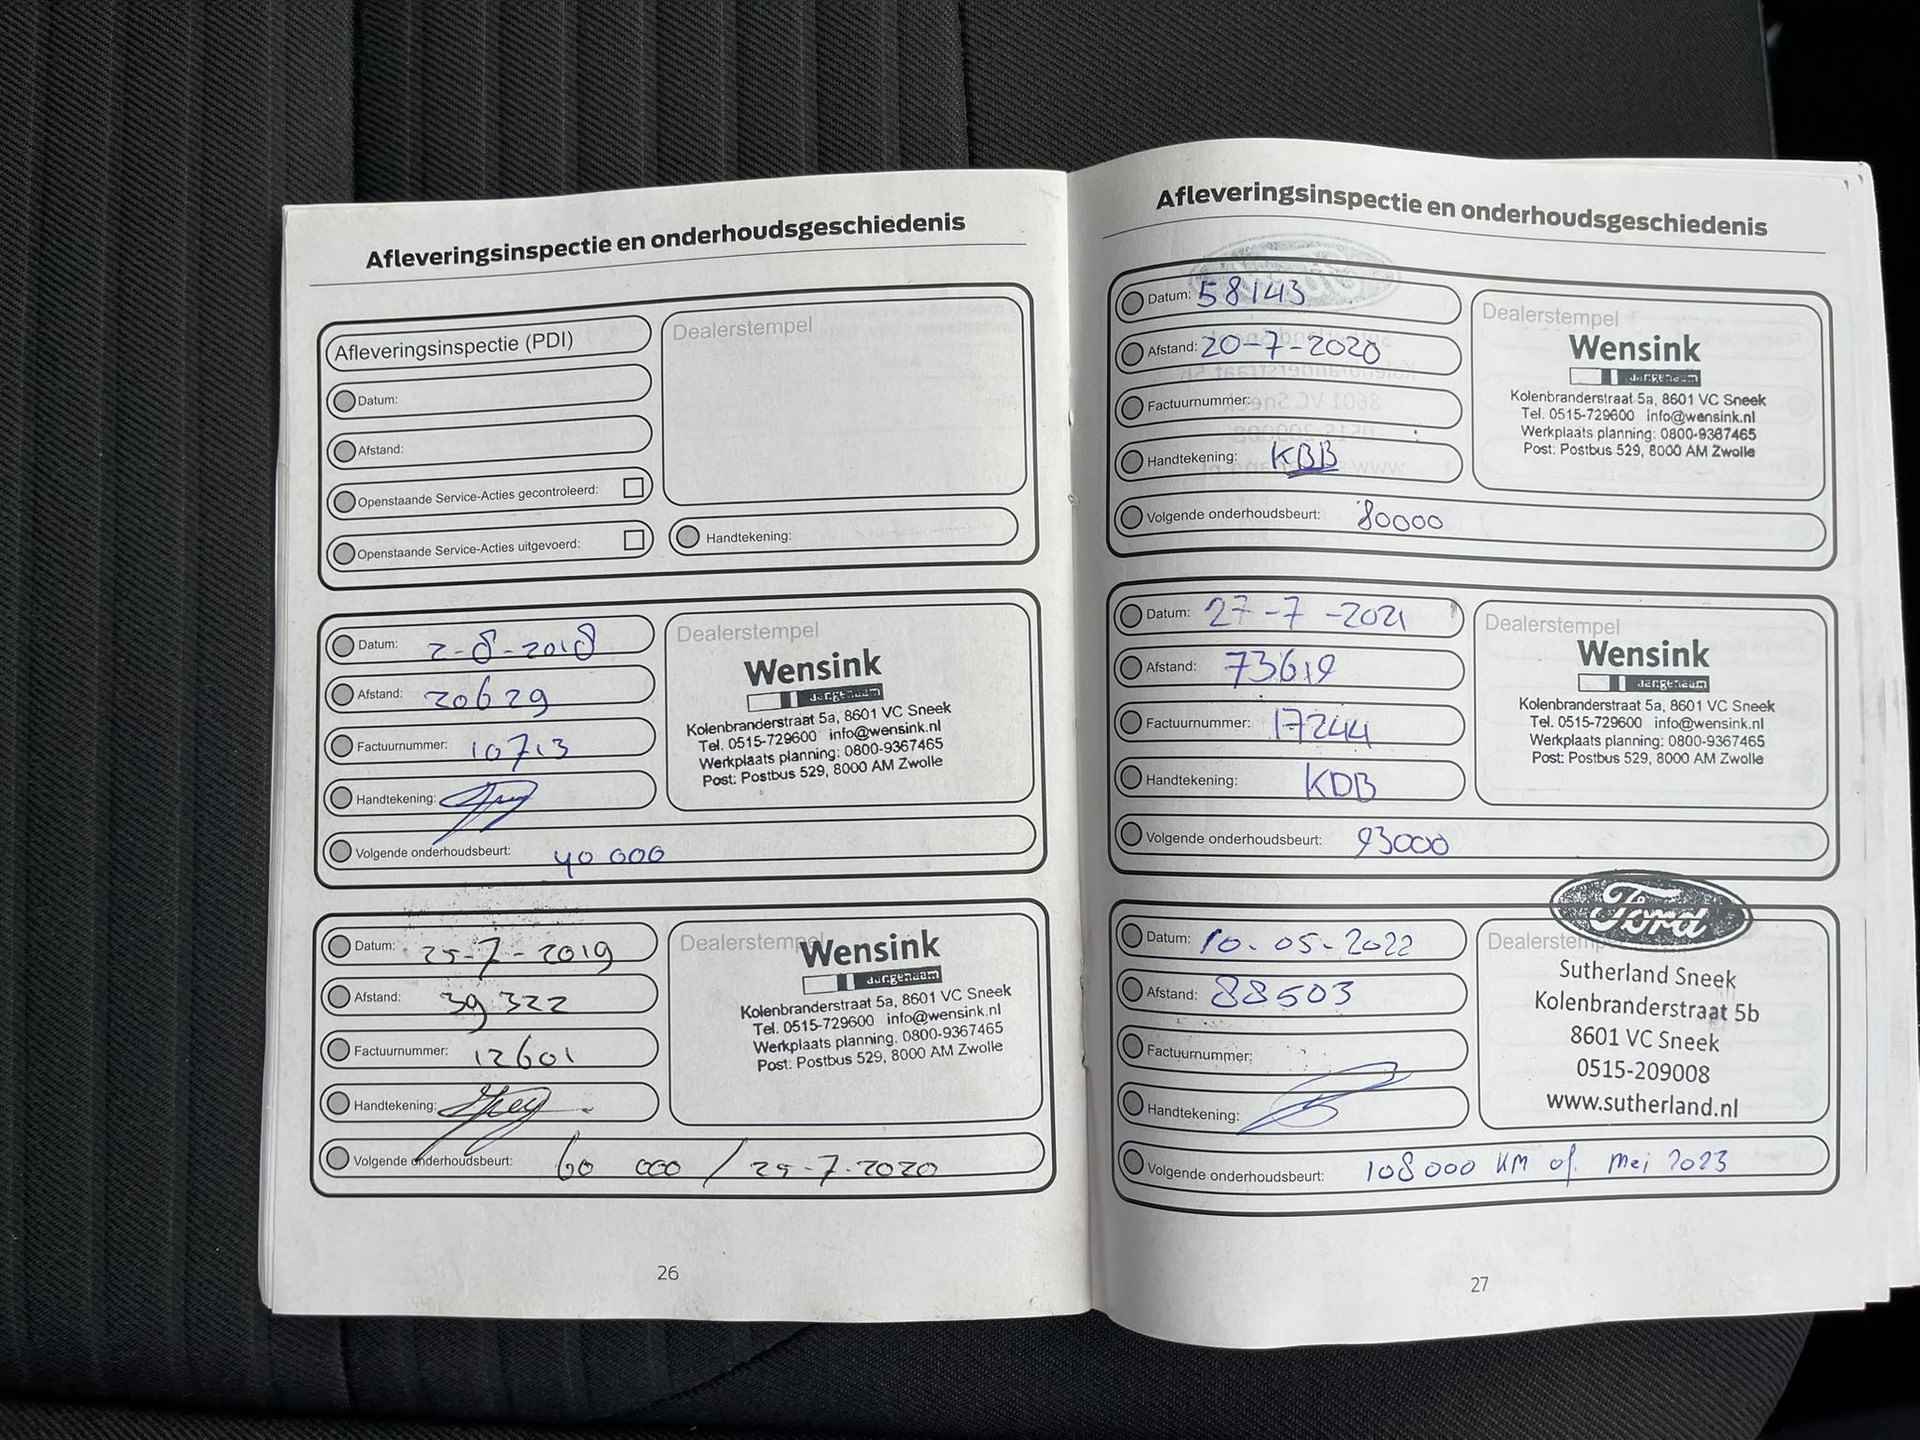 Afleveringsinspectie en onderhoudsgeschiedenis
Afleveringsinspectie (PDI)
Datum:
Afstand:
Openstaande Service-Acties gecontroleerd:
Openstaande Service-Acties uitgevoerd:
Dealerstempel
Handtekening:
Datum: 2-8-2018
Afstand: 20629
Factuurnummer: 10713
Handtekening:
Volgende onderhoudsbeurt: 40 000
Dealerstempel
Wensink
aangenaam
Kolenbranderstraat 5a, 8601 VC Sneek
Tel. 0515-729600 info@wensink.nl
Werkplaats planning: 0800-9367465
Post: Postbus 529, 8000 AM Zwolle
Datum: 25-7-2019
Afstand: 39 322
Factuurnummer: 12601
Handtekening:
Volgende onderhoudsbeurt: 60 000 / 25-7-2020
Dealerstempel
Wensink
aangenaam
Kolenbranderstraat 5a, 8601 VC Sneek
Tel. 0515-729600 info@wensink.nl
Werkplaats planning. 0800-9367465
Post: Postbus 529, 8000 AM Zwolle
26
Afleveringsinspectie en onderhoudsgeschiedenis
Datum: 58143
Afstand: 20-7-2020
Factuurnummer:
Handtekening: KBB
Volgende onderhoudsbeurt: 80000
Dealerstempel
Wensink
aangenaam
Kolenbranderstraat 5a, 8601 VC Sneek
Tel. 0515-729600 info@wensink.nl
Werkplaats planning: 0800-9367465
Post: Postbus 529, 8000 AM Zwolle
Datum: 27-7-2021
Afstand: 73619
Factuurnummer: 17244
Handtekening: KDB
Volgende onderhoudsbeurt: 93000
Dealerstempel
Wensink
aangenaam
Kolenbranderstraat 5a, 8601 VC Sneek
Tel. 0515-729600 info@wensink.nl
Werkplaats planning: 0800-9367465
Post: Postbus 529, 8000 AM Zwolle
Datum: 10-05-2022
Afstand: 88503
Factuurnummer:
Handtekening:
Volgende onderhoudsbeurt: 108000 KM of mei 2023
Dealerstempel
Ford
Sutherland Sneek
Kolenbranderstraat 5b
8601 VC Sneek
0515-209008
www.sutherland.nl
27